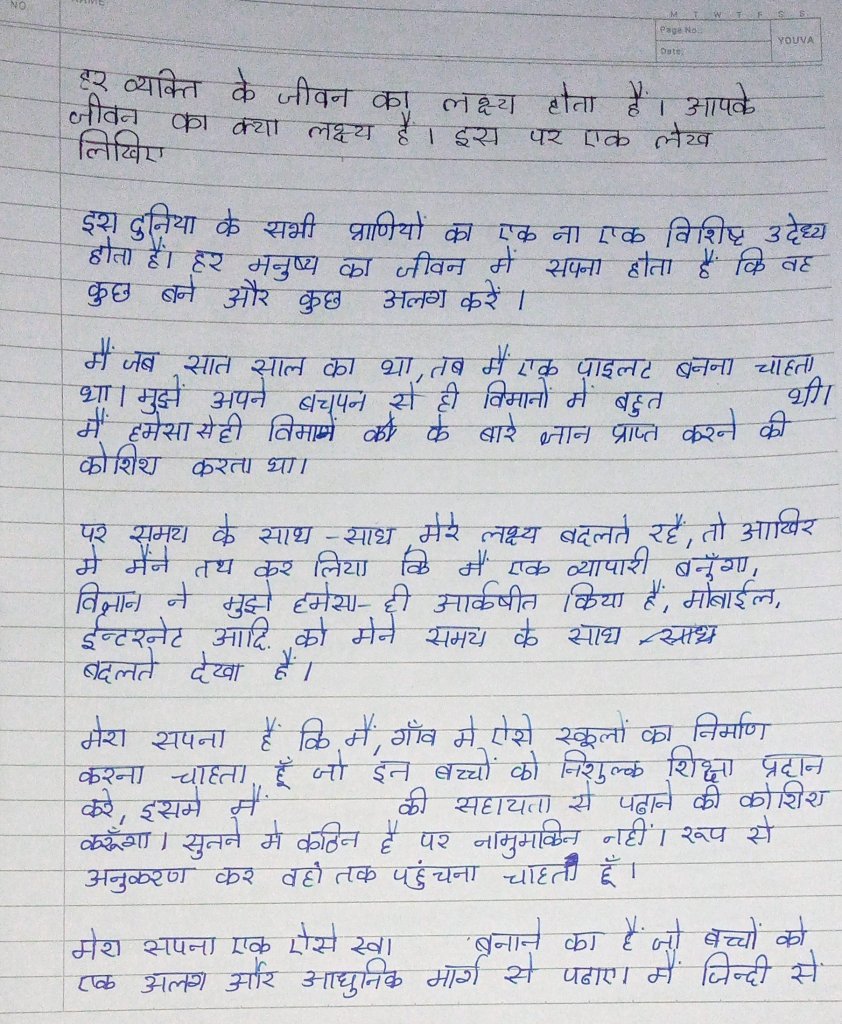 NO.
NAME
M T W T F S S
Page No.:
YOUVA
Date:
हर व्यक्ति के जीवन का लक्ष्य होता हैं। आपके
जीवन का क्या लक्ष्य है। इस पर एक लेख
लिखिए
इस दुनिया के सभी प्राणियों का एक ना एक विशिष्ट उदेध्य
होता हैं। हर मनुष्य का जीवन में सपना होता हैं कि वह
कुछ बने और कुछ अलग करें।
मैं जब सात साल का था, तब मैं एक पाइलट बनना चाहता
था। मुझें अपने बचपन से ही विमानों में बहुत थी।
मैं हमेसा से ही विमानें को के बारे ज्ञान प्राप्त करने की
कोशिश करता था।
पर समय के साथ - साथ मेरे लक्ष्य बदलते रहें, तो आखिर
मे मैंने तय कर लिया कि मैं एक व्यापारी बनूँगा,
विज्ञान ने मुझे हमेसा- ही आर्कषीत किया हैं, मोबाईल,
ईन्टरनेट आदि. को मेने समय के साथ - साथ
बदलते देखा हैं।
मेरा सपना हैं कि मैं, गाँव मे ऐसे स्कूलों का निर्माण
करना चाहता हूँ जो इन बच्चों को निशुल्क शिक्षा प्रदान
करे, इसमे मैं की सहायता से पढाने की कोशिश
करूँगा। सुनने मे कठिन है पर नामुमकिन नहीं। रूप से
अनुकरण कर वहाँ तक पहुंचना चाहता हूँ।
मेरा सपना एक ऐसे स्वा बनाने का हैं जो बच्चों को
एक अलग और आधुनिक मार्ग से पढाए। मैं जिन्दी से